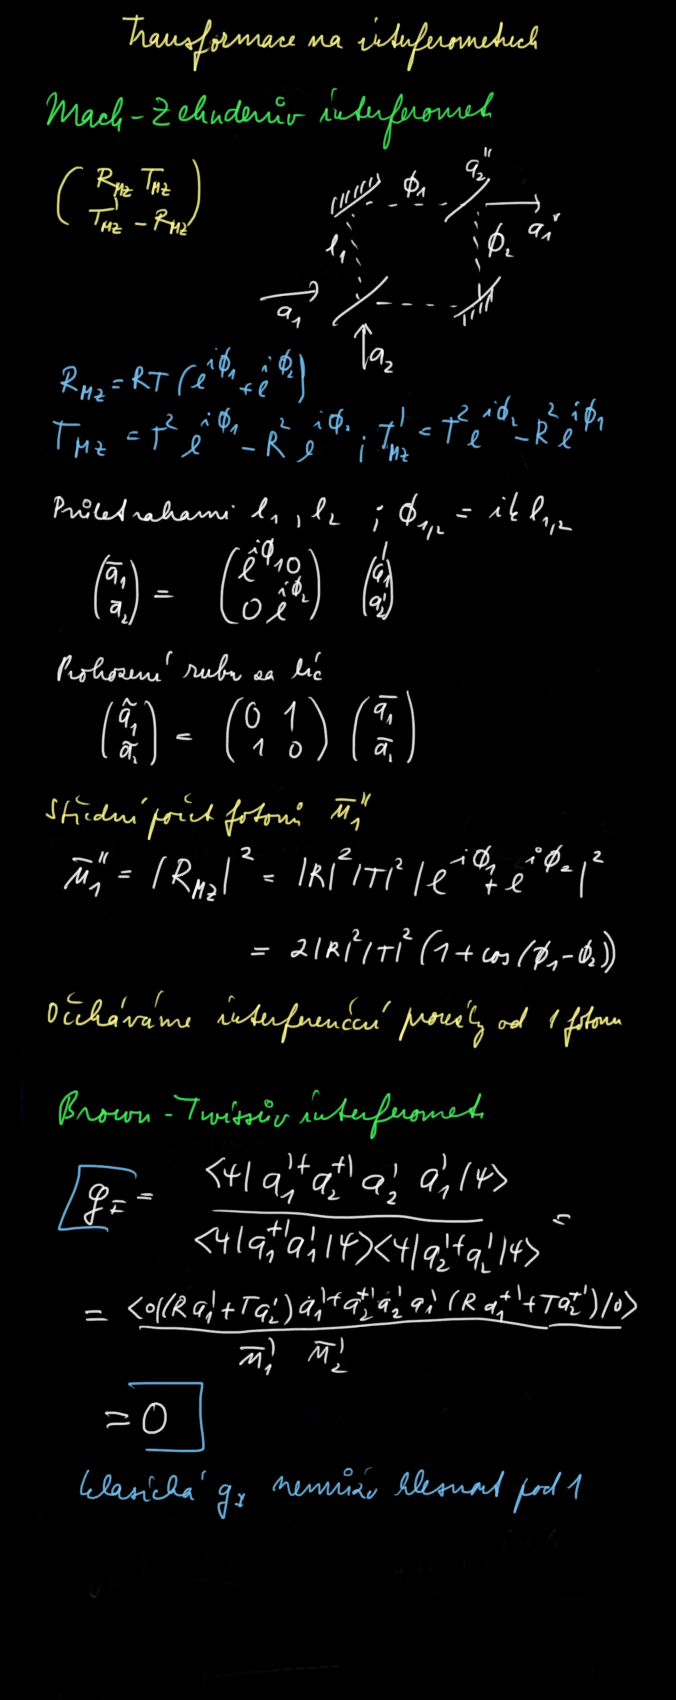 Transformace na interferometrech
Mach-Zehnderův interferomet
( R_MZ T_MZ
T'_MZ -R_MZ )
ϕ₁ a₂''
l₁ ϕ₂ a₁''
a₁
a₂
R_MZ = RT (e^{iϕ₁} + e^{iϕ₂})
T_MZ = T² e^{iϕ₁} - R² e^{iϕ₂} ; T'_MZ = T² e^{iϕ₂} - R² e^{iϕ₁}
Průlet drahami l₁, l₂ ; ϕ₁,₂ = ik l₁,₂
(a̅₁ a̅₂) = (e^{iϕ₁} 0 0 e^{iϕ₂}) (a₁' a₂')
Prohození rubu za líc
(ã₁ ã₂) = (0 1 1 0) (a̅₁ a̅₂)
Střední počet fotonů n̅₁''
n̅₁'' = |R_MZ|² = |R|²|T|² |e^{iϕ₁} + e^{iϕ₂}|²
= 2|R|²|T|² (1 + cos(ϕ₁-ϕ₂))
Očekáváme interferenční proužky od 1 fotonu
Brown-Twissův interferomet
g_I = <ψ| a₁'⁺ a₂⁺' a₂' a₁' |ψ> / <ψ|a₁⁺' a₁'|ψ><ψ|a₂'⁺ a₂'|ψ> =
= <0|(R a₁' + T a₂') a₁'⁺ a₂⁺' a₂' a₁' (R a₁⁺' + T a₂⁺')|0> / n̅₁' n̅₂'
= 0
klasická g_I nemůže klesnout pod 1